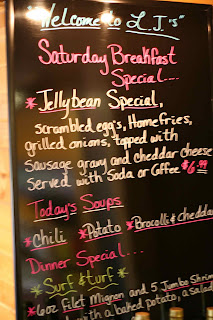 Welcome to L.J.'s"
Saturday Breakfast
Special....
*Jellybean Special,
scrambled egg's, Homefries,
grilled onions, topped with
Sausage gravy and cheddar cheese
Served with Soda or Coffee $6.99
Today's Soups
*Chili *Potato *Brocolli & cheddar
Dinner Special...
*Surf & turf*
*6oz Filet Mignon and 5 Jumbo Shrim
with a baked potato, a salad